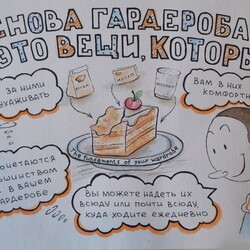 СНОВА ГАРДЕРОБА
ЭТО ВЕЩИ, КОТОРЫ
ЗА НИМИ
УХАЖИВАТЬ
ВАМ В НИХ
КОМФОРТН
The fundaments of your wardrobe
ОЧЕТАЮТСЯ
ШИНСТВОМ
В ВАШЕМ
РДЕРОБЕ
ВЫ МОЖЕТЕ НАДЕТЬ ИХ
ВСЮДУ ИЛИ ПОЧТИ ВСЮДУ,
КУДА ХОДИТЕ ЕЖЕДНЕВНО